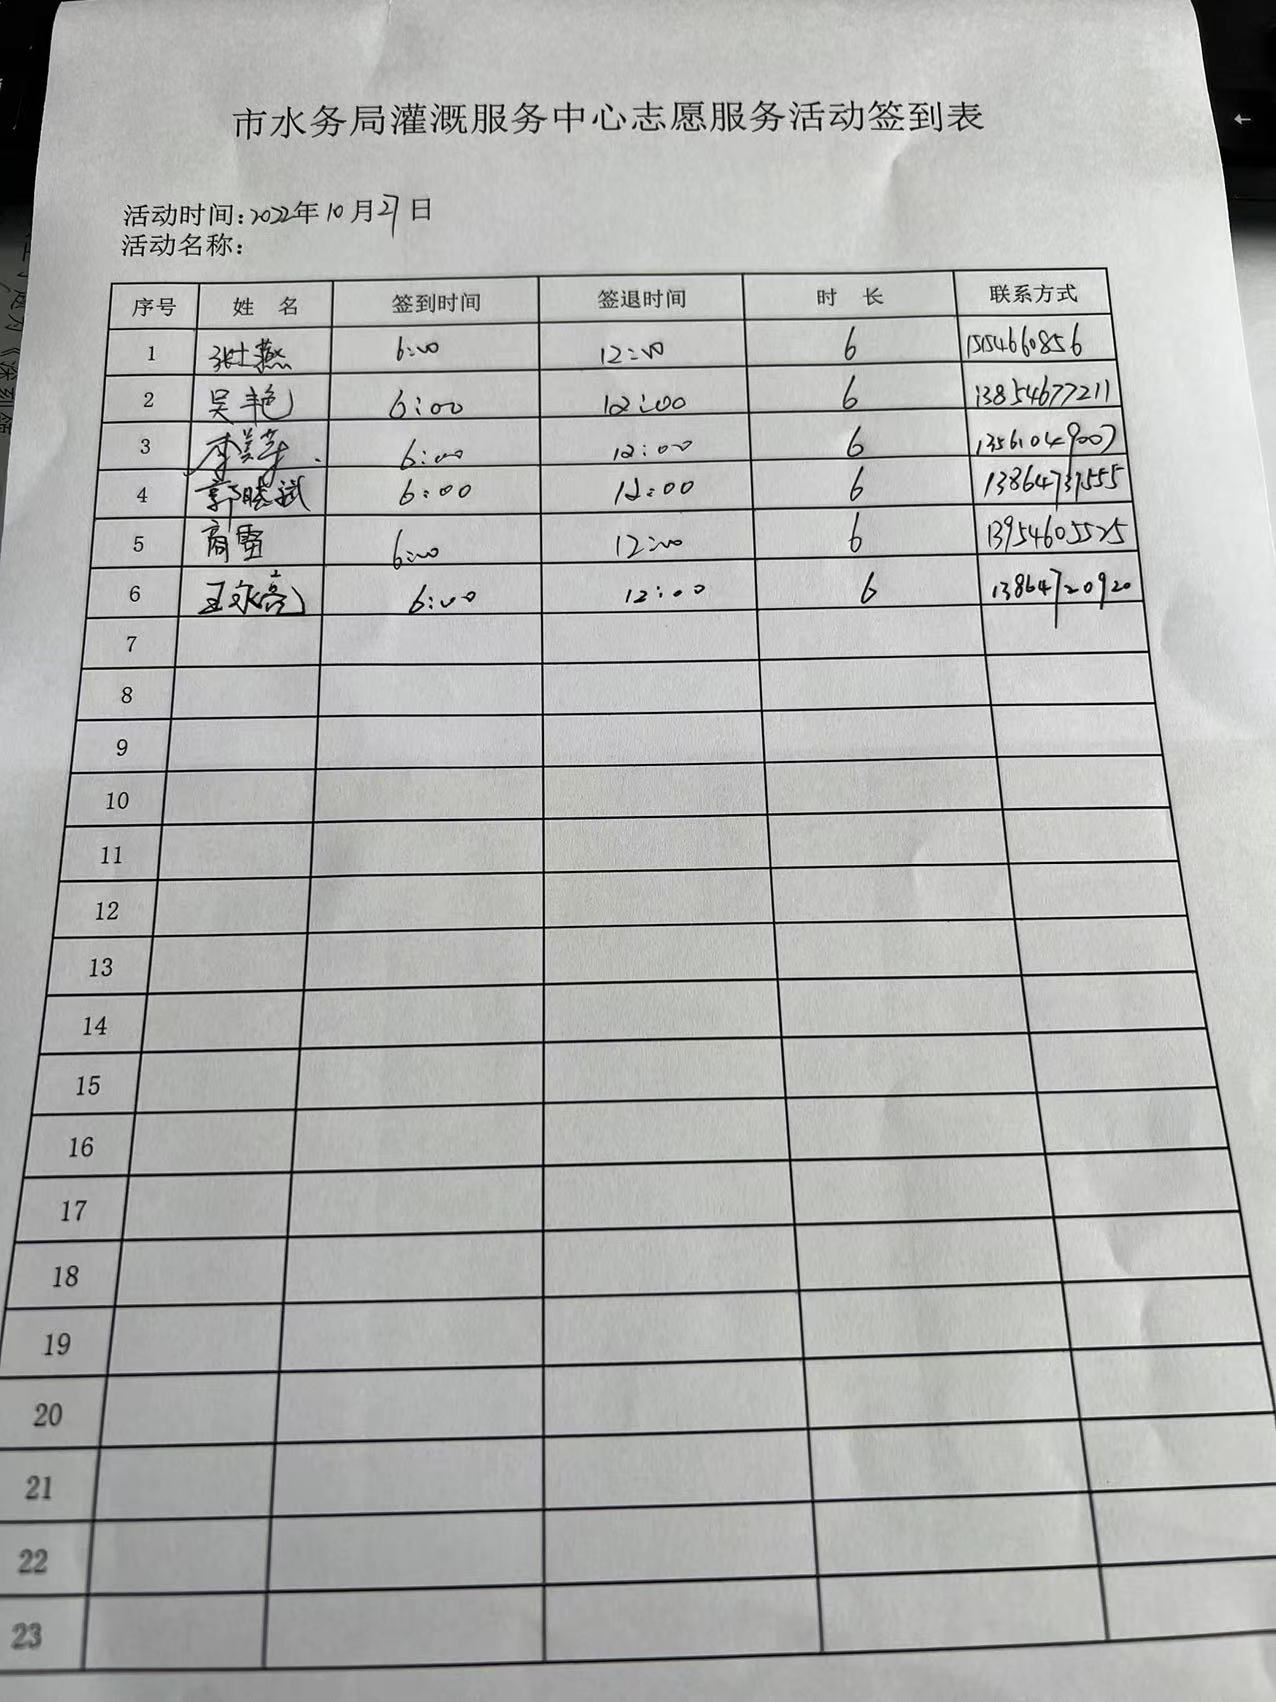 市水务局灌溉服务中心志愿服务活动签到表
活动时间:2022年10月27日
活动名称:
序号 姓 名 签到时间 签退时间 时 长 联系方式
1 燕 6:00 12:00 6
2 吴艳 6:00 12:00 6 13854677211
3 李美萍 6:00 12:00 6 13561049007
4 郭晓斌 6:00 12:00 6 13864731555
5 商雷 6:00 12:00 6 13954605525
6 王永亮 6:00 12:00 6 13864720920
7
8
9
10
11
12
13
14
15
16
17
18
19
20
21
22
23